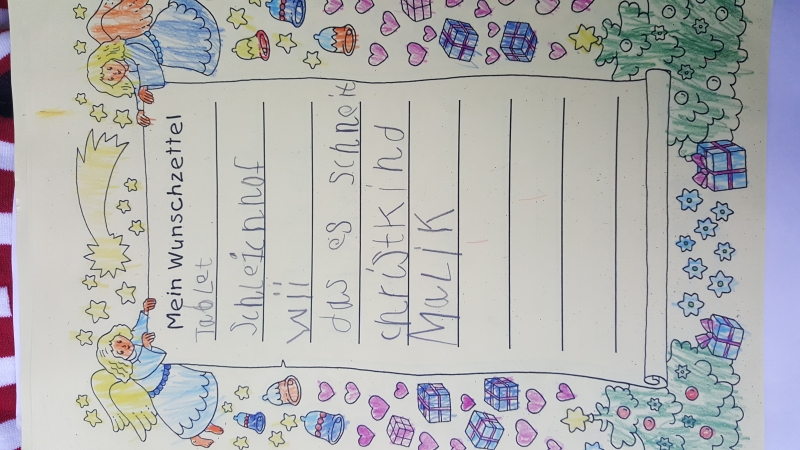 Mein Wunschzettel
Tablet
Schleichhof
Wii
das es schneit
chriStKind
MaLiK